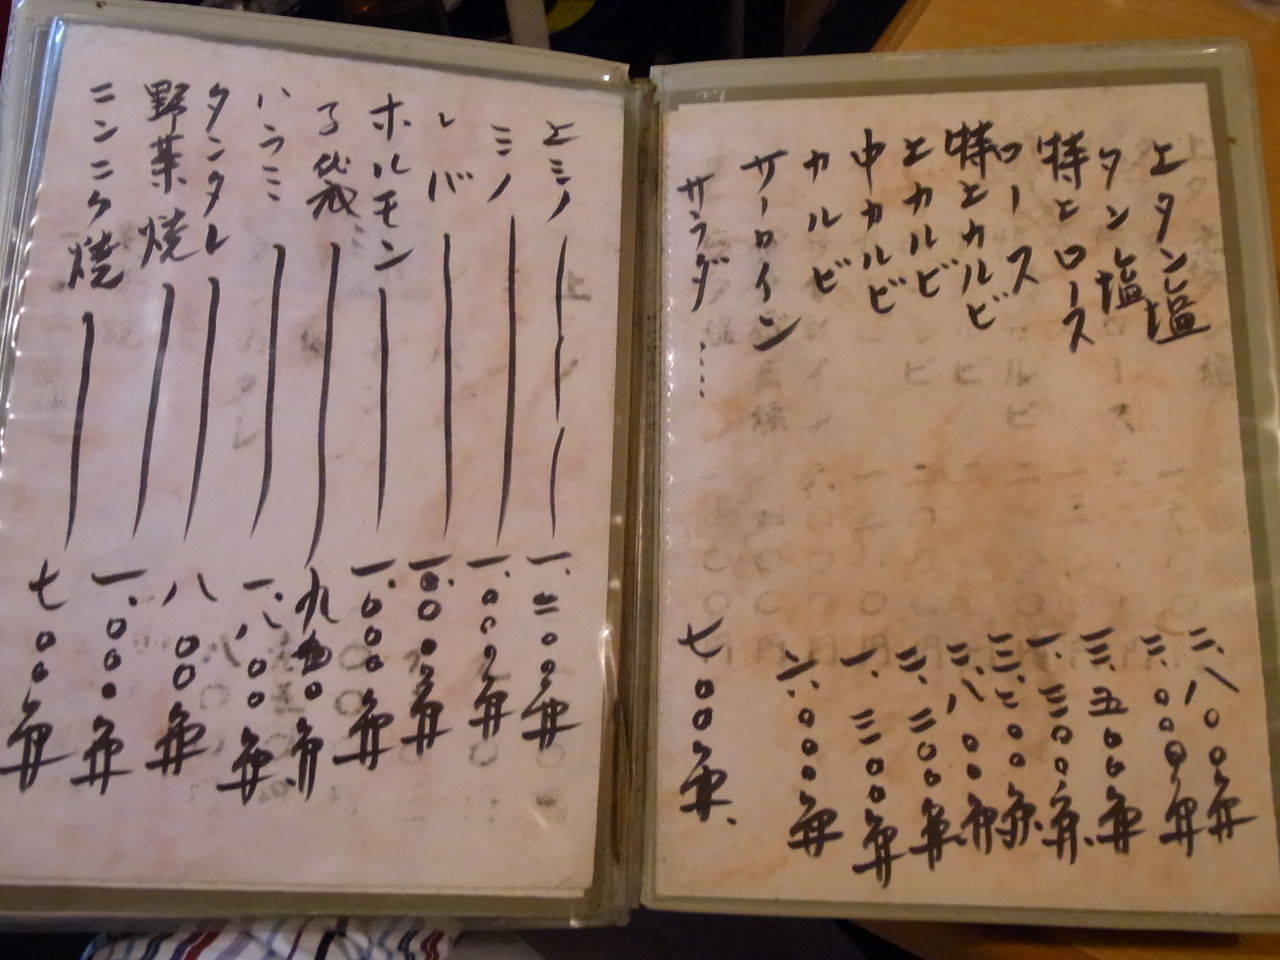 上タン塩 二、八〇〇円
タン塩 二、〇〇〇円
特上ロース 三、五〇〇円
ロース 一、三〇〇円
特上カルビ 三、二〇〇円
上カルビ 二、八〇〇円
中カルビ 二、三〇〇円
カルビ 一、三〇〇円
サーロイン 六、〇〇〇円
サラダ…… 七〇〇円、
上ミノ 一、二〇〇円
ミノ 一、〇〇〇円
レバ 一、〇〇〇円
ホルモン 一、〇〇〇円
子袋 九〇〇円
ハラミ 一、八〇〇円
タンタレ 八〇〇円
野菜焼 一、〇〇〇円
ニンニク焼 七〇〇円